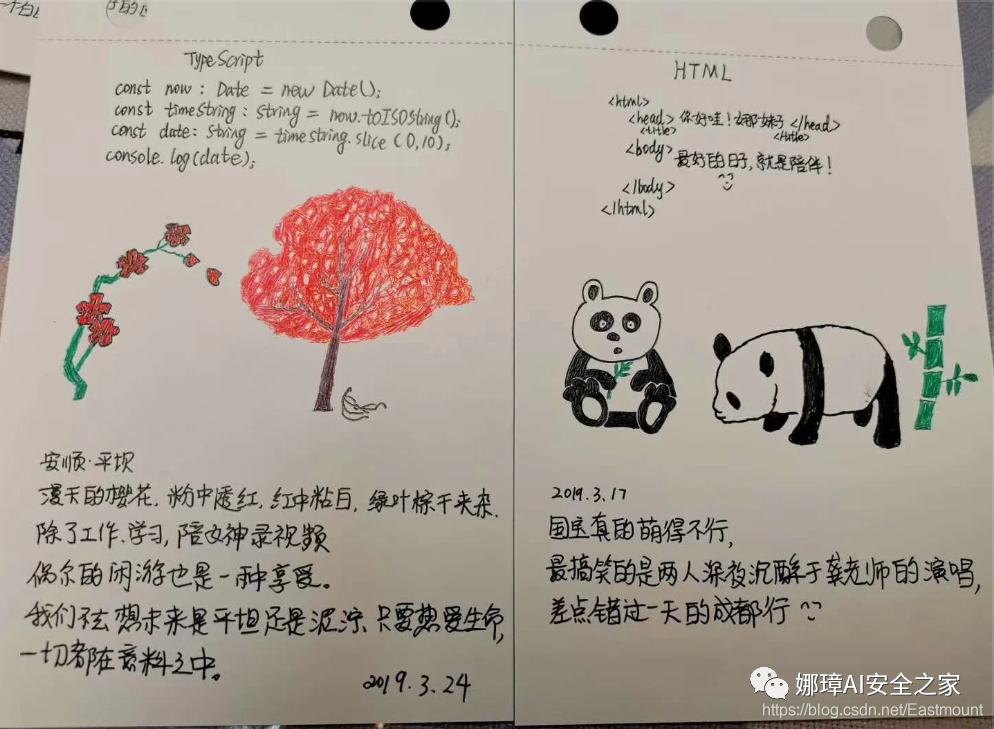 TypeScript
const now : Date = new Date();
const timeString : string = now.toISOString();
const date: string = timeString.slice (0,10);
console.log(date);
安顺·平坝
漫天的樱花,粉中透红,红中粘白,绿叶棕干夹杂.
除了工作、学习,陪女神录视频
偶尔的闲游也是一种享受。
我们不去想未来是平坦还是泥泞,只要热爱生命,
一切都在意料之中。
2019.3.24
HTML
<html>
<head> 你好哇!娜妹子 </head>
<title> </title>
<body>
最好的日子,就是陪伴!
</body>
</html>
2019.3.17
国宝真的萌得不行,
最搞笑的是两人深夜沉醉于龚老师的演唱,
差点错过一天的成都行
娜璋AI安全之家
https://blog.csdn.net/Eastmount